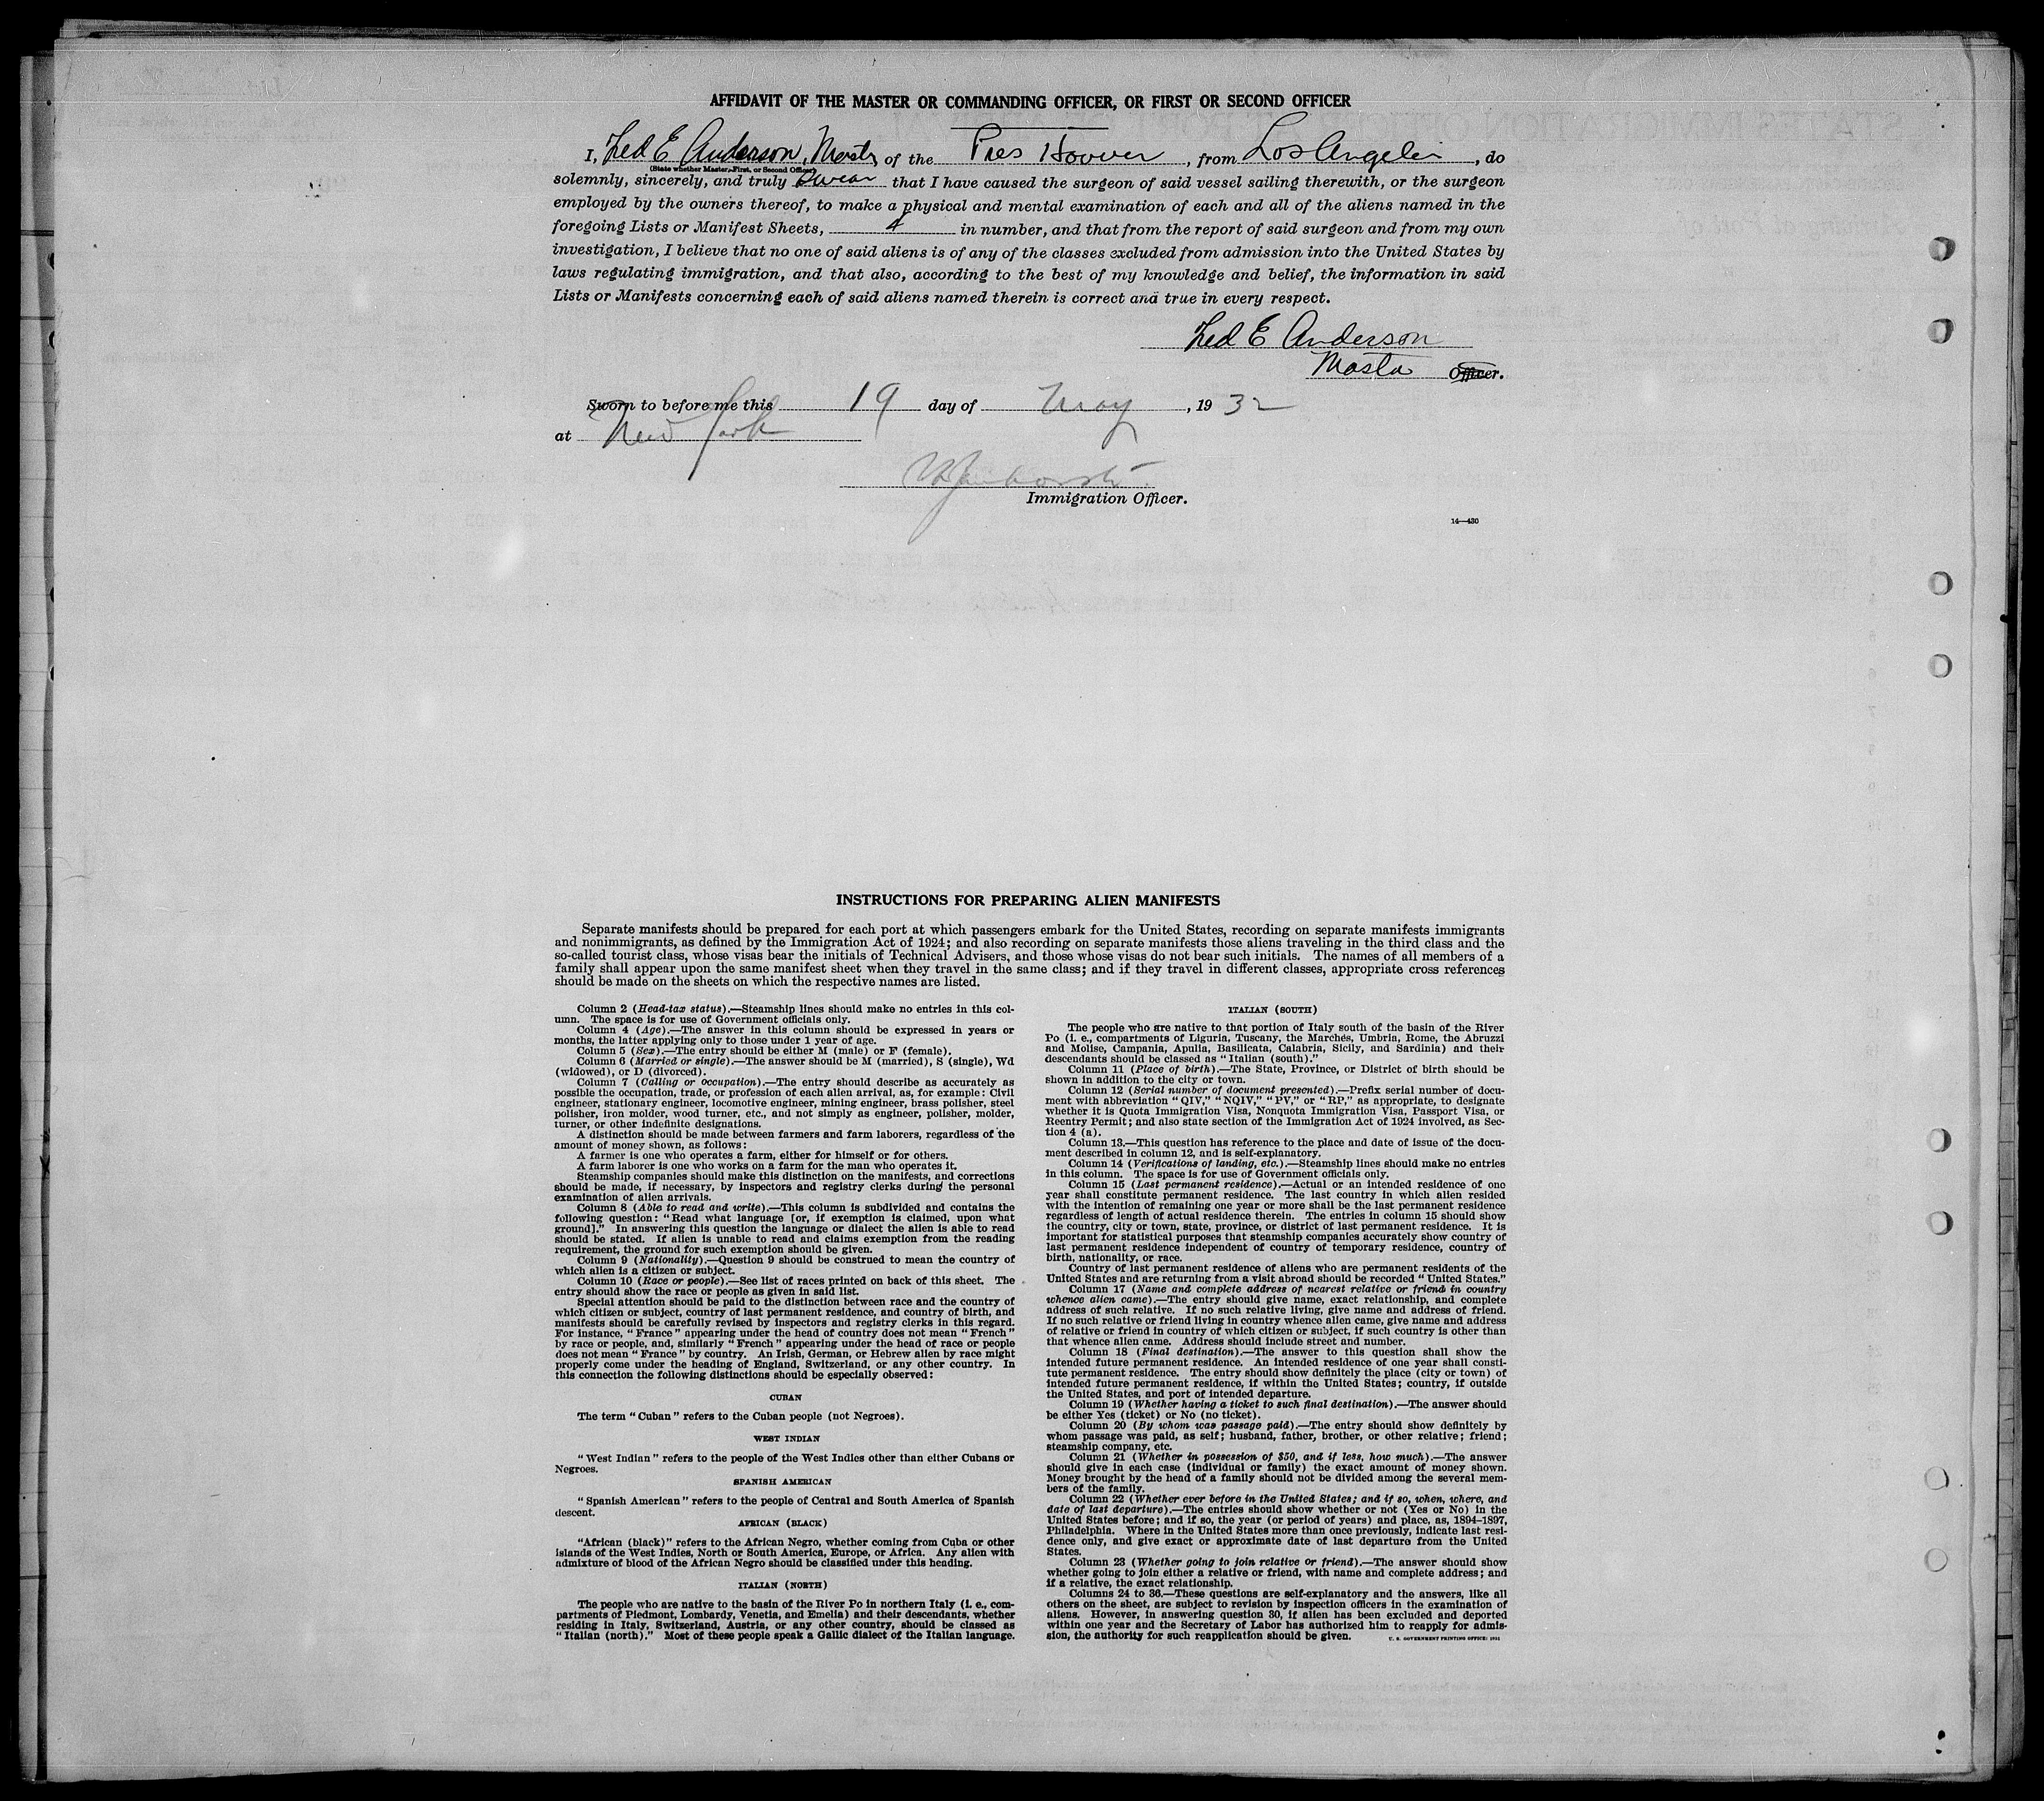 AFFIDAVIT OF THE MASTER OR COMMANDING OFFICER, OR FIRST OR SECOND OFFICER
I, Fred E Anderson, Master of the Pres Hoover, from Los Angeles, do
(State whether Master, First, or Second Officer)
solemnly, sincerely, and truly swear that I have caused the surgeon of said vessel sailing therewith, or the surgeon
employed by the owners thereof, to make a physical and mental examination of each and all of the aliens named in the
foregoing Lists or Manifest Sheets, 4 in number, and that from the report of said surgeon and from my own
investigation, I believe that no one of said aliens is of any of the classes excluded from admission into the United States by
laws regulating immigration, and that also, according to the best of my knowledge and belief, the information in said
Lists or Manifests concerning each of said aliens named therein is correct and true in every respect.
Fred E Anderson
Master Officer.
Sworn to before me this 19 day of May, 1932
at New York
Immigration Officer.
14—430
INSTRUCTIONS FOR PREPARING ALIEN MANIFESTS
Separate manifests should be prepared for each port at which passengers embark for the United States, recording on separate manifests immigrants
and nonimmigrants, as defined by the Immigration Act of 1924; and also recording on separate manifests those aliens traveling in the third class and the
so-called tourist class, whose visas bear the initials of Technical Advisers, and those whose visas do not bear such initials. The names of all members of a
family shall appear upon the same manifest sheet when they travel in the same class; and if they travel in different classes, appropriate cross references
should be made on the sheets on which the respective names are listed.
Column 2 (Head-tax status).—Steamship lines should make no entries in this col-
umn. The space is for use of Government officials only.
Column 4 (Age).—The answer in this column should be expressed in years or
months, the latter applying only to those under 1 year of age.
Column 5 (Sex).—The entry should be either M (male) or F (female).
Column 6 (Married or single).—The answer should be M (married), S (single), Wd
(widowed), or D (divorced).
Column 7 (Calling or occupation).—The entry should describe as accurately as
possible the occupation, trade, or profession of each alien arrival, as, for example: Civil
engineer, stationary engineer, locomotive engineer, mining engineer, brass polisher, steel
polisher, iron molder, wood turner, etc., and not simply as engineer, polisher, molder,
turner, or other indefinite designations.
A distinction should be made between farmers and farm laborers, regardless of the
amount of money shown, as follows:
A farmer is one who operates a farm, either for himself or for others.
A farm laborer is one who works on a farm for the man who operates it.
Steamship companies should make this distinction on the manifests, and corrections
should be made, if necessary, by inspectors and registry clerks during the personal
examination of alien arrivals.
Column 8 (Able to read and write).—This column is subdivided and contains the
following question: "Read what language [or, if exemption is claimed, upon what
ground]." In answering this question the language or dialect the alien is able to read
should be stated. If alien is unable to read and claims exemption from the reading
requirement, the ground for such exemption should be given.
Column 9 (Nationality).—Question 9 should be construed to mean the country of
which alien is a citizen or subject.
Column 10 (Race or people).—See list of races printed on back of this sheet. The
entry should show the race or people as given in said list.
Special attention should be paid to the distinction between race and the country of
which citizen or subject, country of last permanent residence, and country of birth, and
manifests should be carefully revised by inspectors and registry clerks in this regard.
For instance, "France" appearing under the head of country does not mean "French"
by race or people, and, similarly "French" appearing under the head of race or people
does not mean "France" by country. An Irish, German, or Hebrew alien by race might
properly come under the heading of England, Switzerland, or any other country. In
this connection the following distinctions should be especially observed:
CUBAN
The term "Cuban" refers to the Cuban people (not Negroes).
WEST INDIAN
"West Indian" refers to the people of the West Indies other than either Cubans or
Negroes.
SPANISH AMERICAN
"Spanish American" refers to the people of Central and South America of Spanish
descent.
AFRICAN (BLACK)
"African (black)" refers to the African Negro, whether coming from Cuba or other
islands of the West Indies, North or South America, Europe, or Africa. Any alien with
admixture of blood of the African Negro should be classified under this heading.
ITALIAN (NORTH)
The people who are native to the basin of the River Po in northern Italy (i. e., com-
partments of Piedmont, Lombardy, Venetia, and Emelia) and their descendants, whether
residing in Italy, Switzerland, Austria, or any other country, should be classed as
"Italian (north)." Most of these people speak a Gallic dialect of the Italian language.
ITALIAN (SOUTH)
The people who are native to that portion of Italy south of the basin of the River
Po (i. e., compartments of Liguria, Tuscany, the Marches, Umbria, Rome, the Abruzzi
and Molise, Campania, Apulia, Basilicata, Calabria, Sicily, and Sardinia) and their
descendants should be classed as "Italian (south)."
Column 11 (Place of birth).—The State, Province, or District of birth should be
shown in addition to the city or town.
Column 12 (Serial number of document presented).—Prefix serial number of docu-
ment with abbreviation "QIV," "NQIV," "PV," or "RP," as appropriate, to designate
whether it is Quota Immigration Visa, Nonquota Immigration Visa, Passport Visa, or
Reentry Permit; and also state section of the Immigration Act of 1924 involved, as Sec-
tion 4 (a).
Column 13.—This question has reference to the place and date of issue of the docu-
ment described in column 12, and is self-explanatory.
Column 14 (Verifications of landing, etc.).—Steamship lines should make no entries
in this column. The space is for use of Government officials only.
Column 15 (Last permanent residence).—Actual or an intended residence of one
year shall constitute permanent residence. The last country in which alien resided
with the intention of remaining one year or more shall be the last permanent residence
regardless of length of actual residence therein. The entries in column 15 should show
the country, city or town, state, province, or district of last permanent residence. It is
important for statistical purposes that steamship companies accurately show country of
last permanent residence independent of country of temporary residence, country of
birth, nationality, or race.
Country of last permanent residence of aliens who are permanent residents of the
United States and are returning from a visit abroad should be recorded "United States."
Column 17 (Name and complete address of nearest relative or friend in country
whence alien came).—The entry should give name, exact relationship, and complete
address of such relative. If no such relative living, give name and address of friend.
If no such relative or friend living in country whence alien came, give name and address
of relative or friend in country of which citizen or subject, if such country is other than
that whence alien came. Address should include street and number.
Column 18 (Final destination).—The answer to this question shall show the
intended future permanent residence. An intended residence of one year shall consti-
tute permanent residence. The entry should show definitely the place (city or town) of
intended future permanent residence, if within the United States; country, if outside
the United States, and port of intended departure.
Column 19 (Whether having a ticket to such final destination).—The answer should
be either Yes (ticket) or No (no ticket).
Column 20 (By whom was passage paid).—The entry should show definitely by
whom passage was paid, as self; husband, father, brother, or other relative; friend;
steamship company, etc.
Column 21 (Whether in possession of $50, and if less, how much).—The answer
should give in each case (individual or family) the exact amount of money shown.
Money brought by the head of a family should not be divided among the several mem-
bers of the family.
Column 22 (Whether ever before in the United States; and if so, when, where, and
date of last departure).—The entries should show whether or not (Yes or No) in the
United States before; and if so, the year (or period of years) and place, as, 1894–1897,
Philadelphia. Where in the United States more than once previously, indicate last resi-
dence only, and give exact or approximate date of last departure from the United
States.
Column 23 (Whether going to join relative or friend).—The answer should show
whether going to join either a relative or friend, with name and complete address; and
if a relative, the exact relationship.
Columns 24 to 36.—These questions are self-explanatory and the answers, like all
others on the sheet, are subject to revision by inspection officers in the examination of
aliens. However, in answering question 30, if alien has been excluded and deported
within one year and the Secretary of Labor has authorized him to reapply for admis-
sion, the authority for such reapplication should be given.
U. S. GOVERNMENT PRINTING OFFICE: 1931